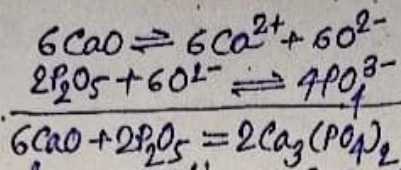 6CaO ⇌ 6Ca²⁺ + 6O²⁻
2P₂O₅ + 6O²⁻ ⇌ 4PO₄³⁻
6CaO + 2P₂O₅ = 2Ca₃(PO₄)₂